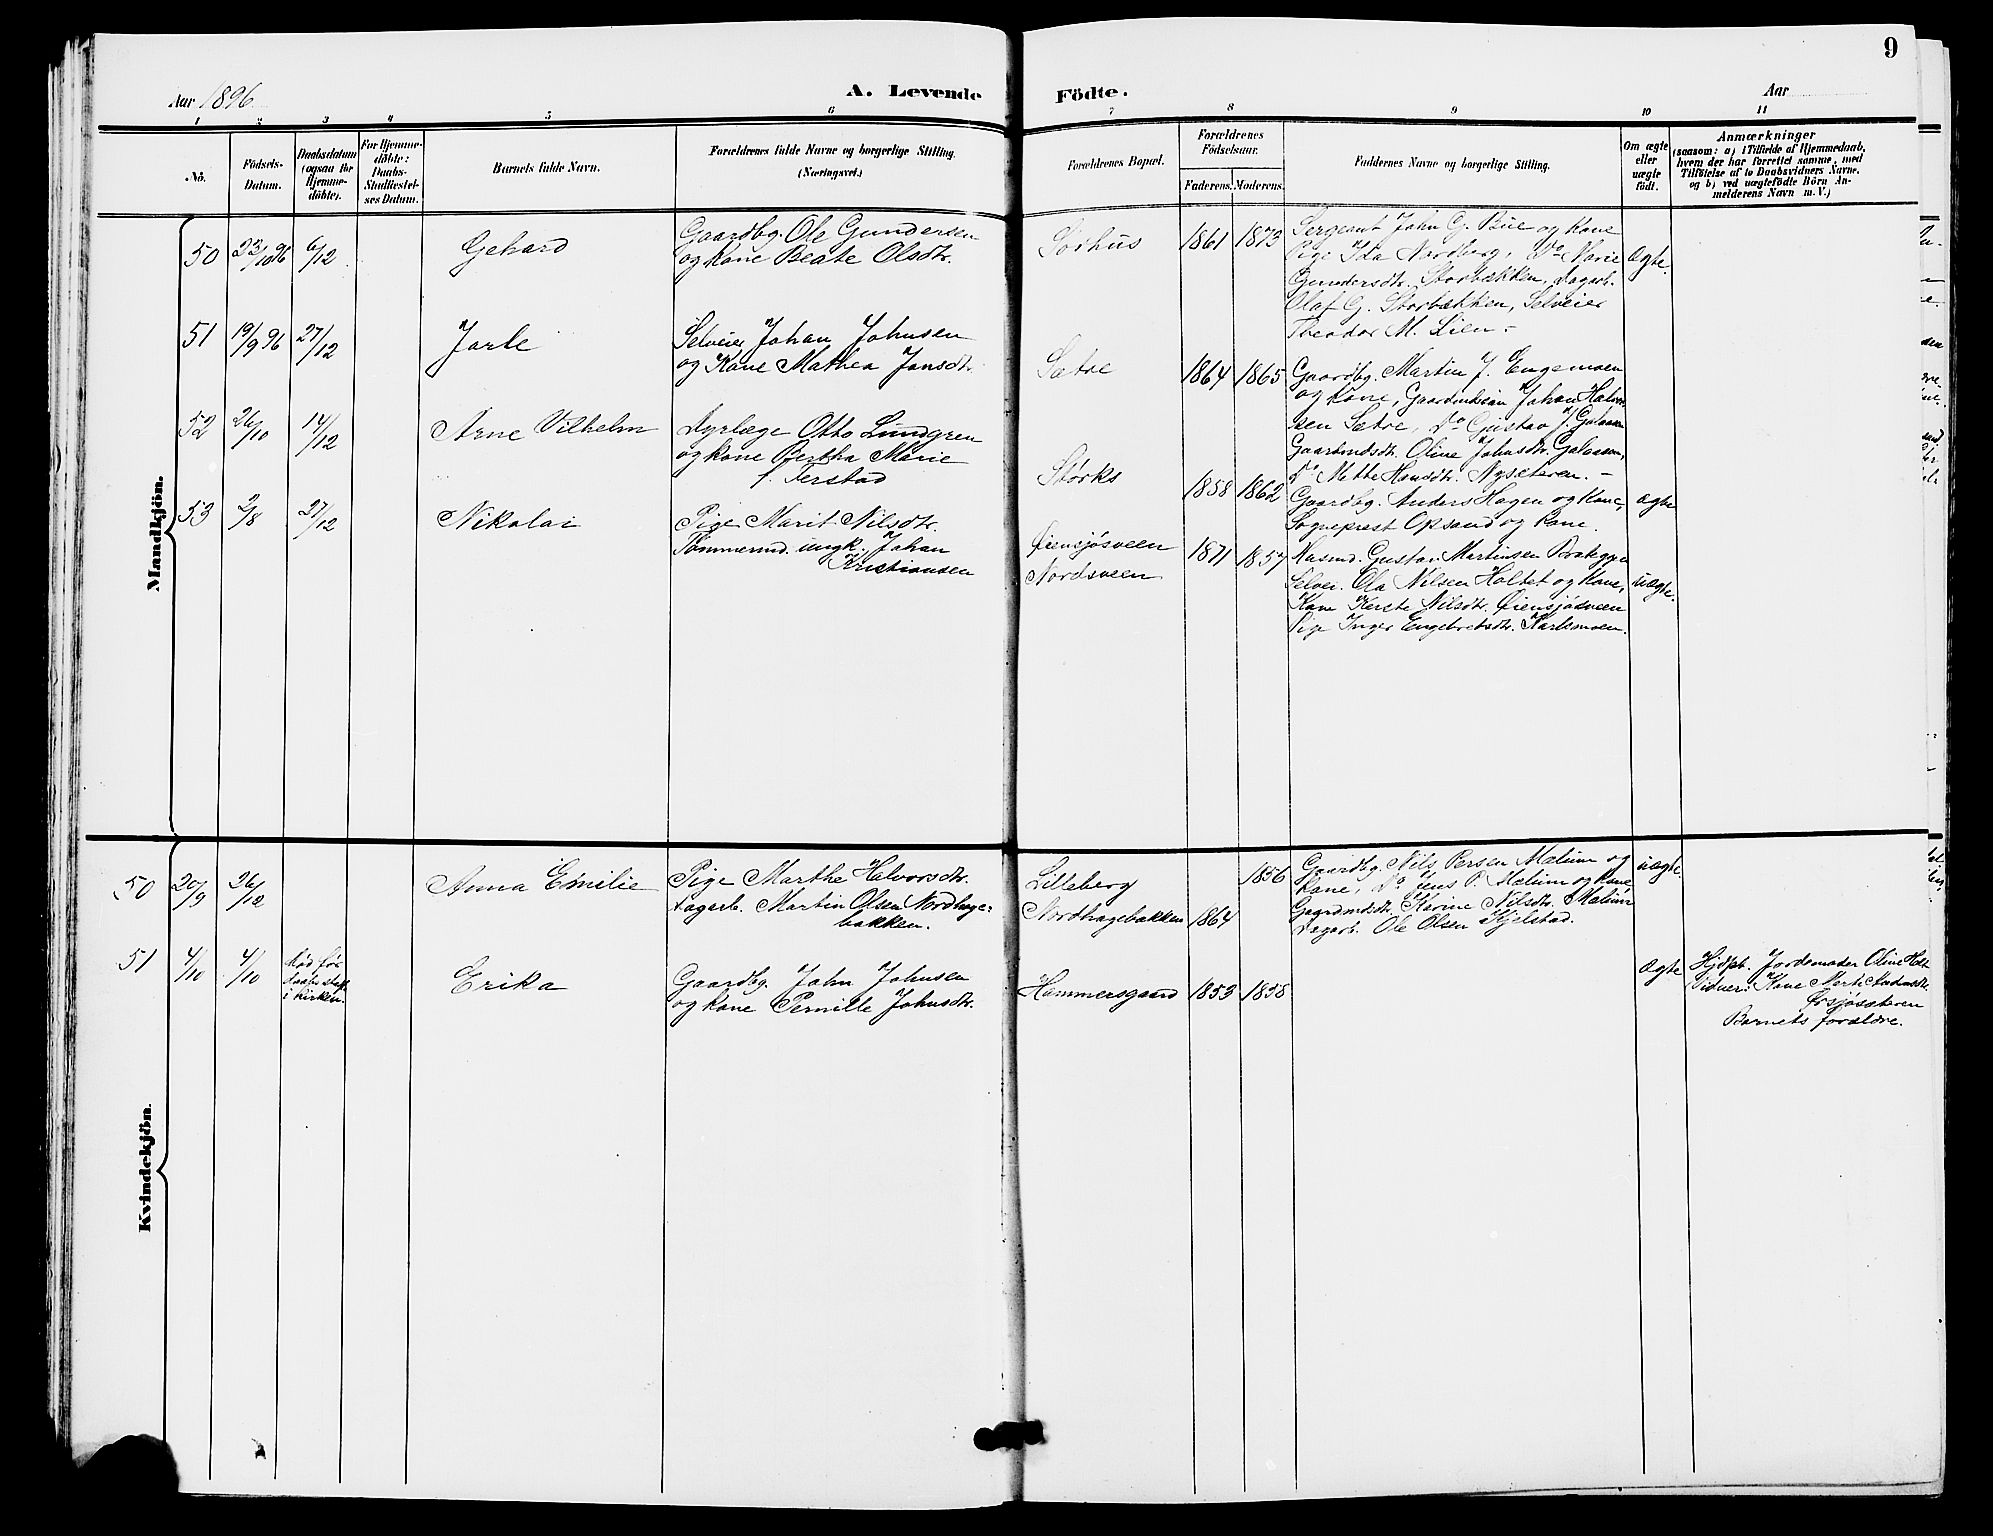 9
Aar 1896
A. Levende Födte.
Aar
1 2 3 4 5 6 7 8 9 10 11
No.
Födsels-
Datum.
Daabsdatum
(ogsaa for
Hjemme-
döbte).
For Hjemme-
döbte:
Daabs-
Stadfæstel-
ses Datum.
Barnets fulde Navn.
Forældrenes fulde Navne og borgerlige Stilling.
(Næringsvei.)
Forældrenes Bopæl.
Forældrenes
Födselsaar.
Faderens. Moderens.
Faddernes Navne og borgerlige Stilling.
Om ægte
eller
uægte
født.
Anmærkninger
(saasom: a) i Tilfælde af Hjemmedaab,
hvem der har forrettet samme, med
Tilföielse af to Daabsvidners Navne,
og b) ved uægtefödte Börn An-
melderens Navn m. V.)
Mandkjön.
50 23/10 96 6/12 Gehard
Gaardbg. Ole Gundersen
og Kone Beate Olsdtr.
Sørhus 1861 1873
Sergeant John G. Bue og Kone
Pige Ida Nordberg, Do Marie
Gundersdtr. Storbækken, Dagarb.
Olaf G. Storbækken, Selveier
Theodor M. Lien -
Ægte.
51 19/9 96 27/12 Jarle
Selveier Johan Johnsen
og Kone Mathea Jonsdtr.
Sætre 1864 1865
Gaardbg. Martin J. Engemoen
og Kone, Gaardmdssøn Johan Halvor-
sen Sætre, Do Gustav J. Galaasen
Gaardmdsdtr. Oline Johnsdtr. Galaasen,
Do Mette Hansdtr. Nysæteren. -
52 26/10 14/12 Arne Vilhelm
Dyrlæge Otto Lundgren
og Kone Bertha Marie
f. Terstad
Størks 1858 1862
Gaardbg. Anders Hagen og Kone,
Sogneprest Opsand og Kone.
ægte
53 2/8 27/12 Nikolai
Pige Marit Nilsdtr.
Tømmermd. ungk. Johan
Kristiansen
Øiensjøsveen
Nordsveen
1871 1857
Husmd. Gustav Martinsen
Selvei. Ola Nilsen Holtet og Kone,
Kone Kerste Nilsdtr. Øiensjøsveen
Pige Inger Engebretsdtr. Karlsmoen.
uægte.
Kvindekjön.
50 20/9 26/12 Anna Emilie
Pige Marthe Halvorsdtr.
Dagarb. Martin Olsen Nordhage-
bakken.
Lilleberg
Nordhagebakken
1864 1856
Gaardbg. Nils Persen Mælum og
Kone, Do Jens P. Mælum og Kone,
Gaardmdsdtr. Karine Nilsdtr. Mælum
Dagarb. Ole Olsen Kjelstad.
uægte.
51 4/10 4/10
død før
Daabs stadf.
i Kirken.
Erika
Gaardbg. John Johnsen
og Kone Pernille Johnsdtr.
Hammersgaard 1853 1858
Ægte
Hjdpt. Jordemoder Oline Holt
Vidner: Kone
Ørsjøsæteren
Barnets forældre.